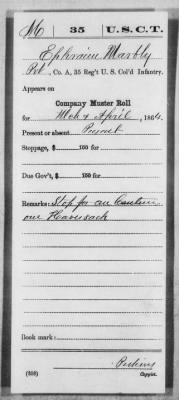 M 35 U.S.C.T.
Ephraim Marbly
Pvt, Co. A, 35 Reg't U. S. Col'd Infantry.
Appears on
Company Muster Roll
for Mch & April, 1864.
Present or absent Present
Stoppage, $ 100 for
Due Gov't, $ 100 for
Remarks: Stop for one Canteen
one Haversack
Book mark:
Perkins
(358) Copyist.